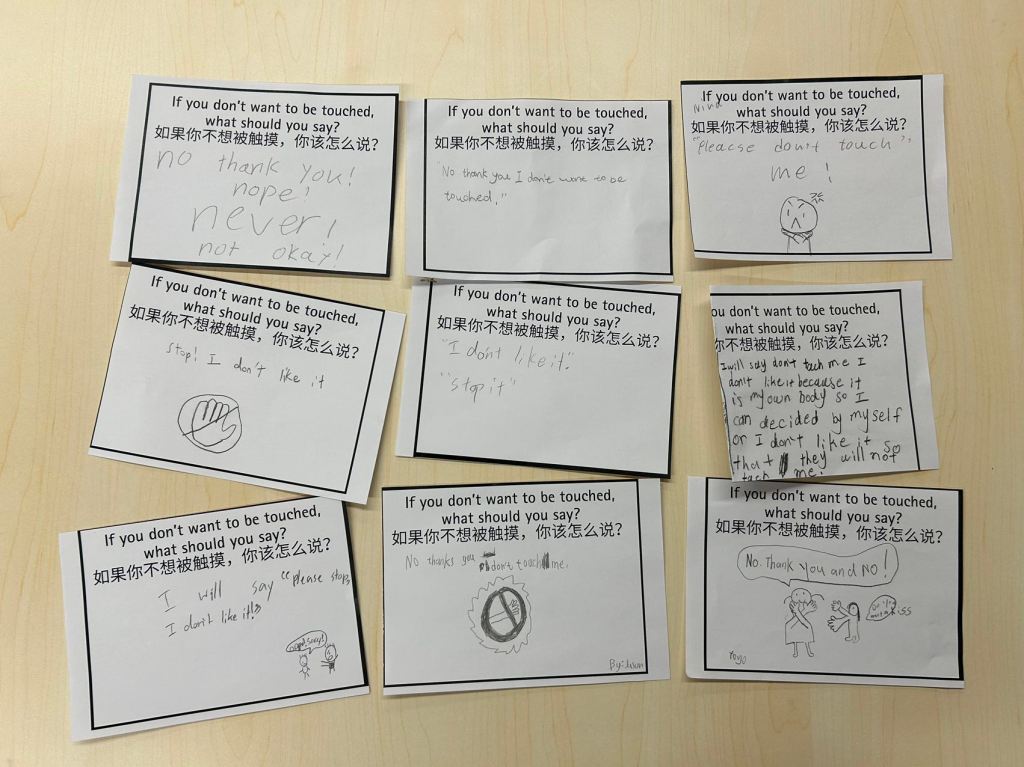 If you don't want to be touched,
what should you say?
如果你不想被触摸，你该怎么说？
no thank you!
nope!
never!
not okay!
If you don't want to be touched,
what should you say?
如果你不想被触摸，你该怎么说？
"No thank you I don't want to be
touched."
If you don't want to be touched,
what should you say?
如果你不想被触摸，你该怎么说？
"Pleacse don't touch"
me !
If you don't want to be touched,
what should you say?
如果你不想被触摸，你该怎么说？
Stop! I don't like it
If you don't want to be touched,
what should you say?
如果你不想被触摸，你该怎么说？
"I don't like it."
"Stop it"
ou don't want to be touched,
what should you say?
如果你不想被触摸，你该怎么说？
I will say don't tach me I
don't like it because it
is my own body so I
can decided by myself
or I don't like it so
that they will not
tach me.
If you don't want to be touched,
what should you say?
如果你不想被触摸，你该怎么说？
I will say "please stop,
I don't like it!"
If you don't want to be touched,
what should you say?
如果你不想被触摸，你该怎么说？
No thanks you don't touch me.
By:
If you don't want to be touched,
what should you say?
如果你不想被触摸，你该怎么说？
No. Thank you and NO!
kiss
Yoyo